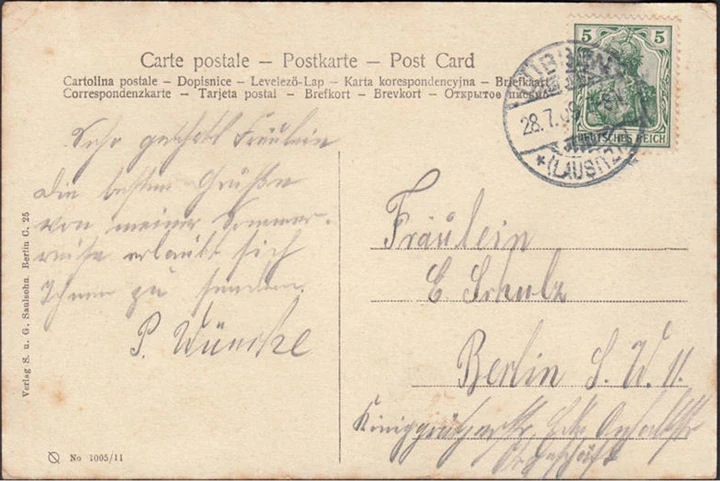 Carte postale – Postkarte – Post Card
Cartolina postale – Dopisnice – Levelező-Lap – Karta korespondencyjna – Briefkaart
Correspondenzkarte – Tarjeta postal – Brefkort – Brevkort – Открытое письмо
5 5
DEUTSCHES REICH
28.7.
*(LAUSITZ)
Sehr geehrtes Fräulein
die besten Grüße
von meiner Sommer-
reise erlaubt sich
Ihnen zu senden
P. Wünsche
Fräulein
E Schulz
Berlin S. W. 11.
Königgrätzerstr, Ecke Anhaltstr
Verlag S. u. G. Saulsohn, Berlin C. 25
No 1005/11